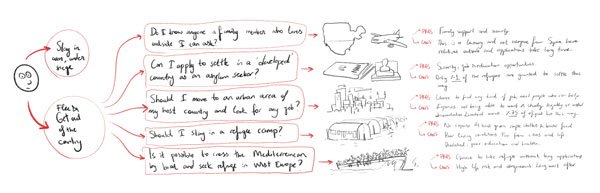 Stay in
war, under
siege
Flee &
Get out
of the
country
Do I know anyone a family member who lives
outside I can ask?
Can I apply to settle in a 'developed'
country as an asylum seeker?
Should I move to an urban area of
my host country and look for any job?
Should I stay in a refugee camp?
Is it possible to cross the Mediterranean
by boat and seek refuge in West Europe?
PROS Family support and security
CONS This is a luxury and not everyone from Syria have
relatives outside and applications take long time.
PROS Security, job &
CONS Only of the refugees are granted to settle this
way
PROS Chance to find any kind of job, meet people who can help
CONS Expenses, not being able to work & study legally or without
documentation. Limited
PROS
CONS Poor living conditions, far from cities and life
Isolated, poor education and health
PROS Chance to take refuge without long applications
CONS High life risk and